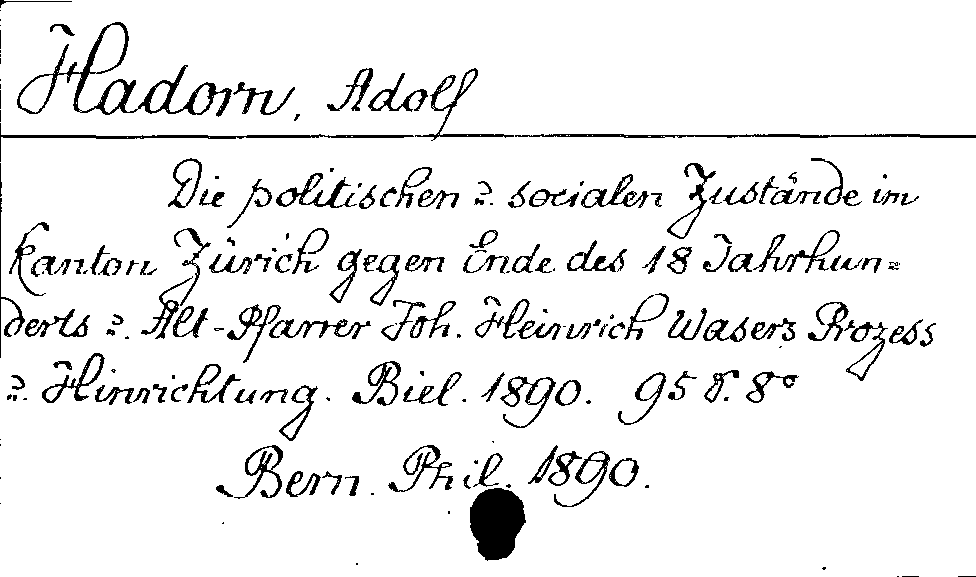 Hadorn, Adolf
Die politischen u. socialen Zustände im
Kanton Zürich gegen Ende des 18 Jahrhun=
derts u. Alt-Pfarrer Joh. Heinrich Wasers Prozess
u. Hinrichtung. Biel. 1890. 95 S. 8°
Bern. Phil. 1890.